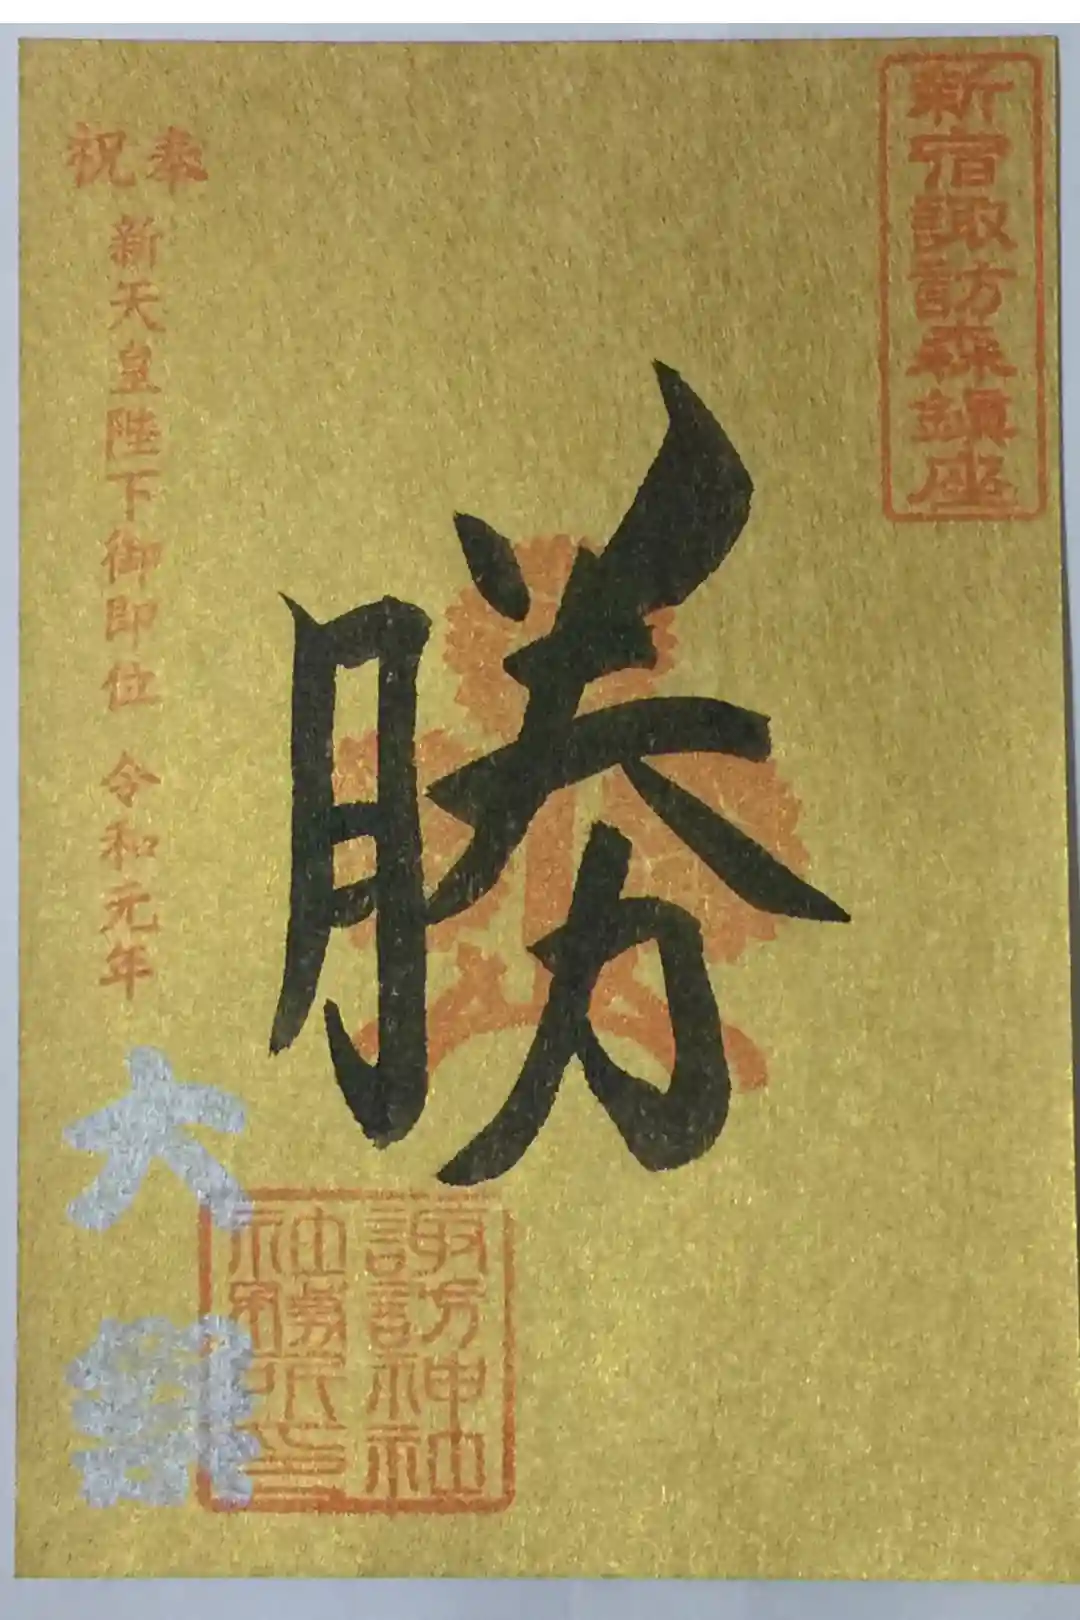 新宿諏訪森鎮座
勝
奉祝
新天皇陛下御即位 令和元年
大
諏訪神社